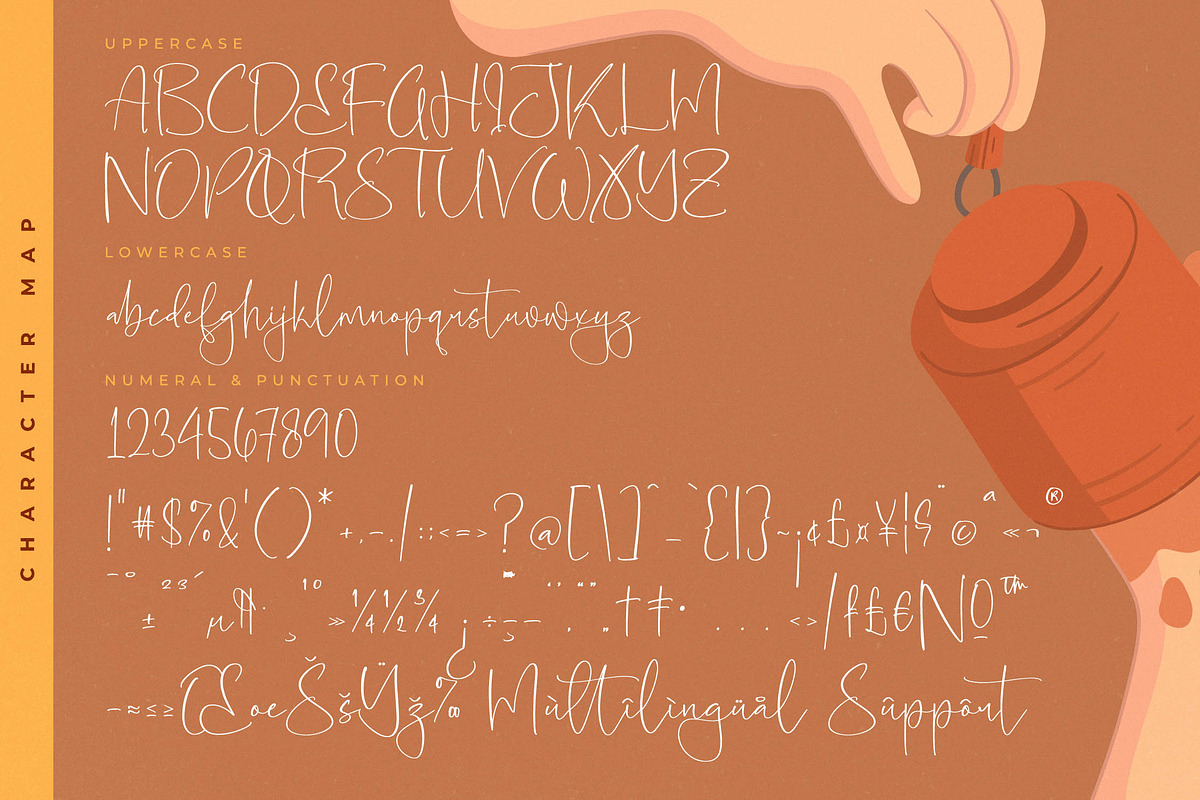 CHARACTER MAP
UPPERCASE
ABCDEFGHIJKLM
NOPQRSTUVWXYZ
LOWERCASE
abcdefghijklmnopqrstuvwxyz
NUMERAL & PUNCTUATION
1234567890
!"#$%&'()*+,-./:;<=>?@[\]^_`{|}~¡¢£¤¥¦§¨©ª«¬®
¯°±²³´µ¶·¸¹º»¼½¾¿÷–—‘’‚“”„†‡•...‹›⁄₣₤€№™
−≈≤≥ŒœŠšŸž‰ Mùltîlìngüål Sûppôrt